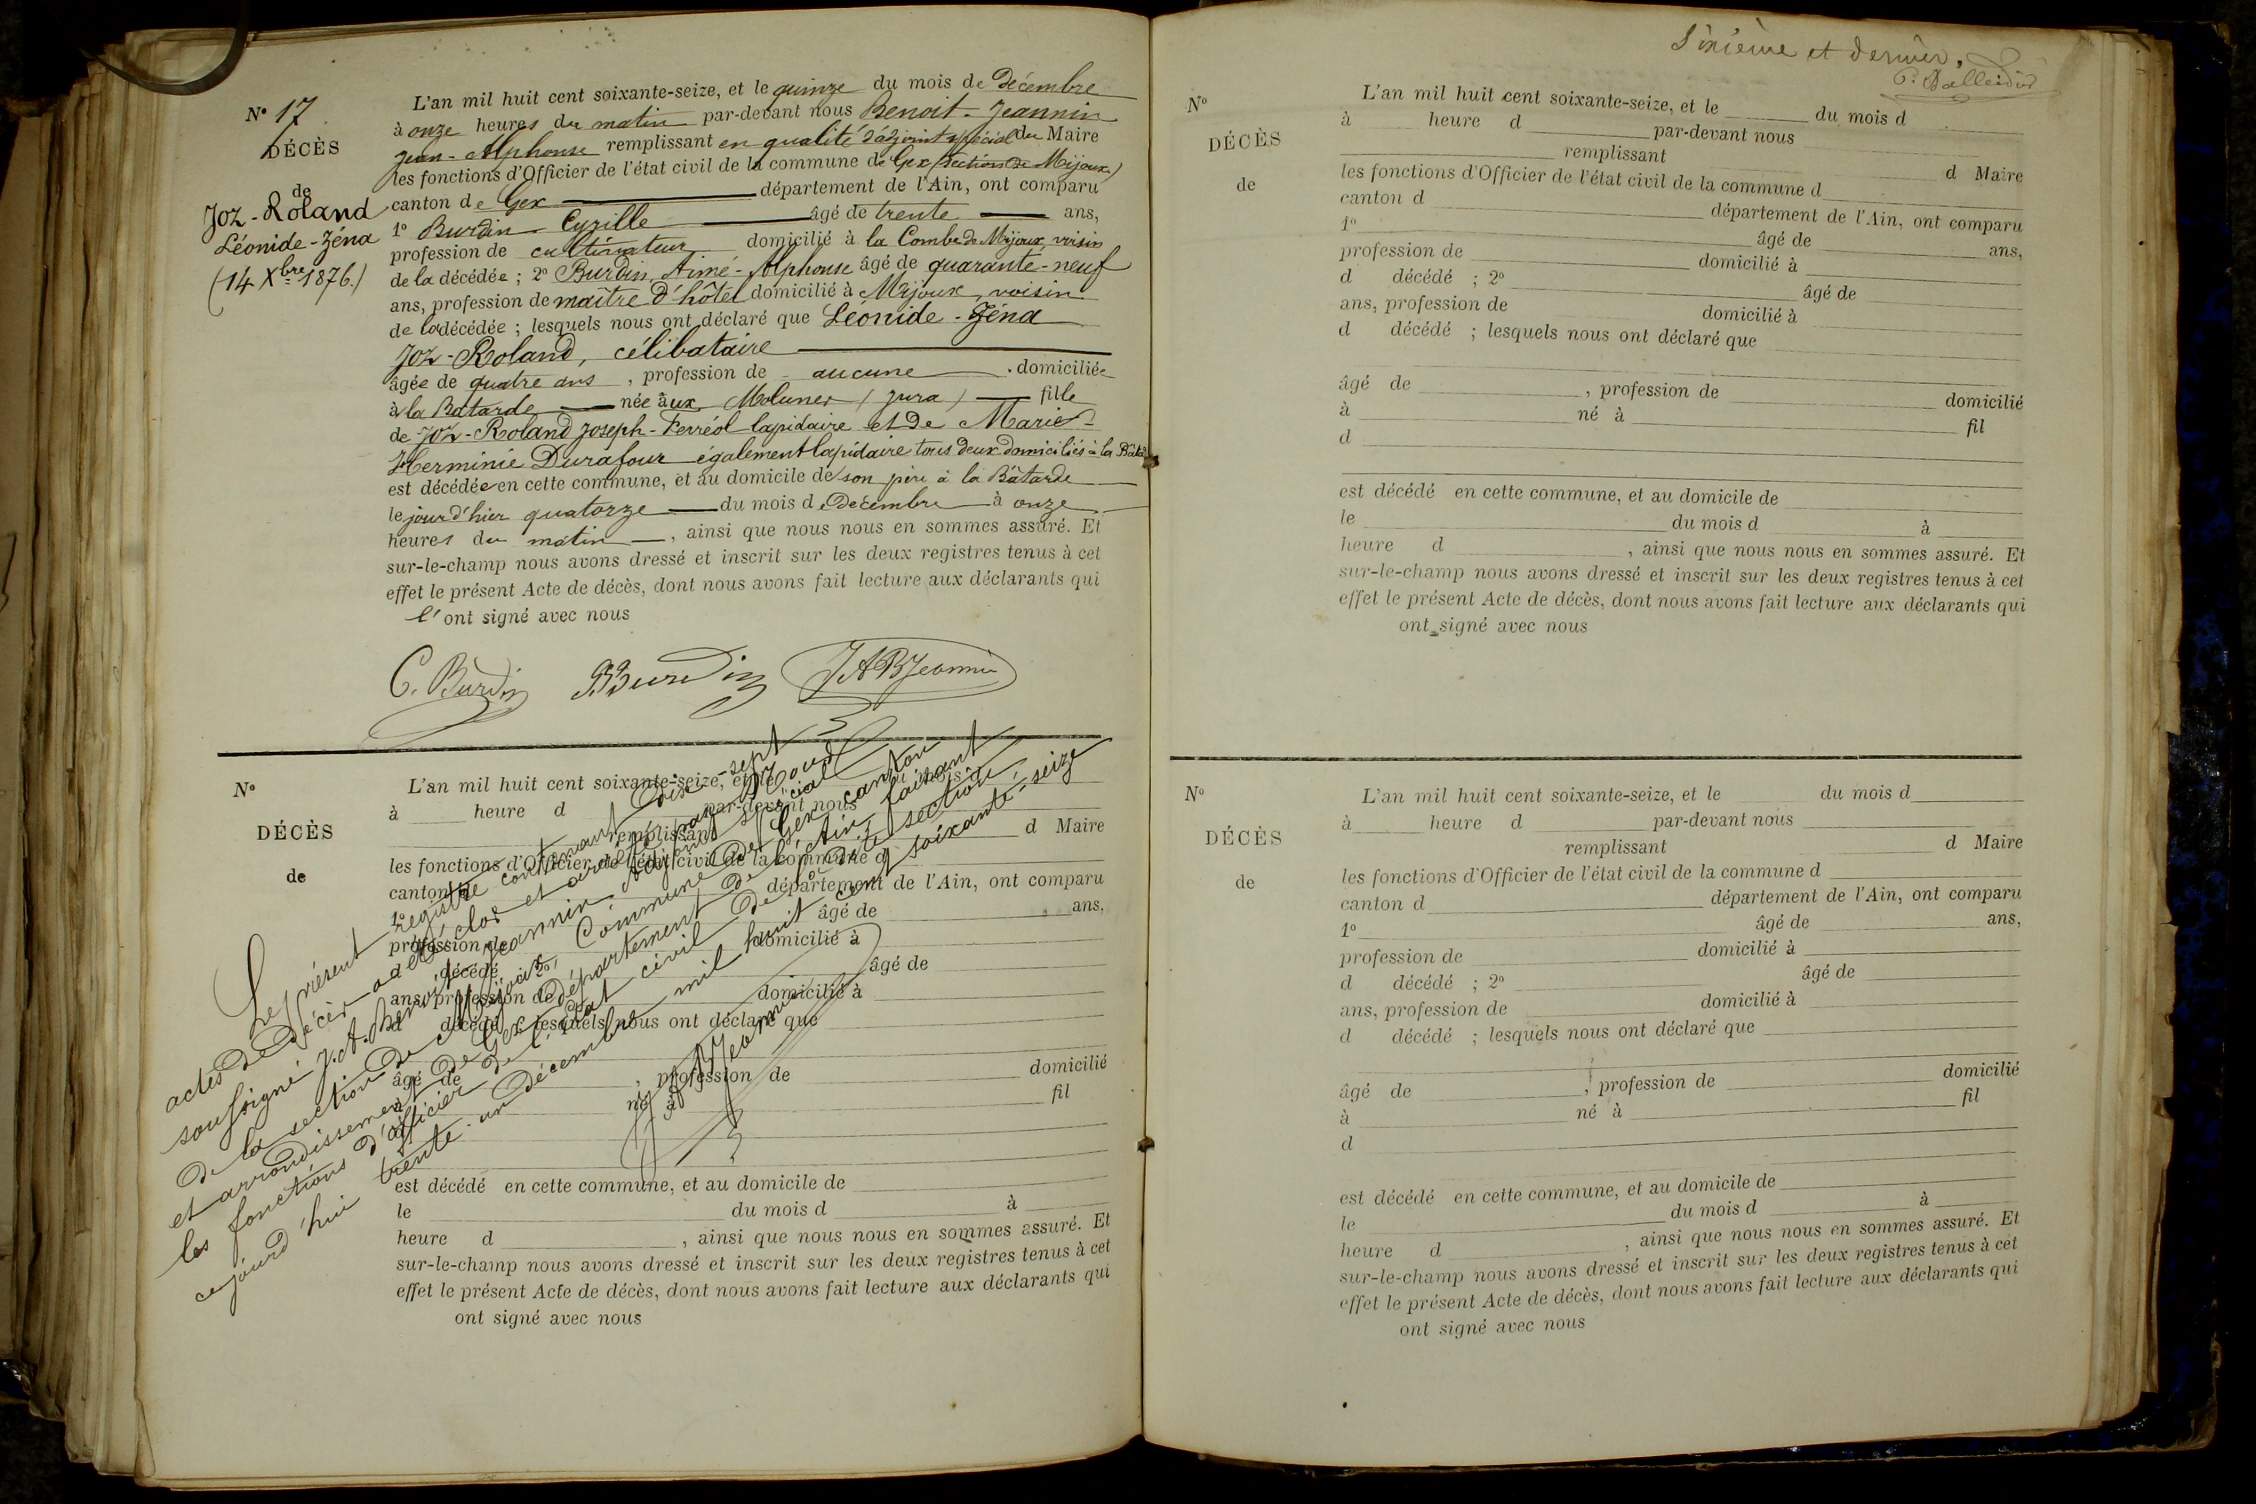 N° 17
DÉCÈS
de
Joz-Roland
Léonide-Zéna
(14 Xbre 1876.)
L'an mil huit cent soixante-seize, et le quinze du mois de Décembre
à onze heures du matin par-devant nous Benoit-Jeannin
Jean-Alphonse remplissant en qualité d'adjoint spécial du Maire
les fonctions d'Officier de l'état civil de la commune de Gex (section de Mijoux)
canton de Gex département de l'Ain, ont comparu
1° Burdin Cyrille âgé de trente ans,
profession de cultivateur domicilié à la Combe de Mijoux, voisin
de la décédée ; 2° Burdin, Aimé-Alphonse âgé de quarante-neuf
ans, profession de maître d'hôtel domicilié à Mijoux, voisin
de la décédée ; lesquels nous ont déclaré que Léonide-Zéna
Joz-Roland, célibataire
âgée de quatre ans, profession de aucune domiciliée
à la Batarde née aux Molunes (Jura) fille
de Joz-Roland Joseph-Ferréol lapidaire et de Marie-
Herminie Durafour également lapidaire tous deux domiciliés à la
est décédée en cette commune, et au domicile de son père à la Bâtarde
le jour d'hier quatorze du mois de Décembre à onze
heures du matin, ainsi que nous nous en sommes assuré. Et
sur-le-champ nous avons dressé et inscrit sur les deux registres tenus à cet
effet le présent Acte de décès, dont nous avons fait lecture aux déclarants qui
l'ont signé avec nous
C. Burdin Burdin JABJeannin
N°
DÉCÈS
de
L'an mil huit cent soixante-seize, et le du mois
à heure d par-devant nous
remplissant d Maire
les fonctions d'Officier de l'état civil de la commune d
canton d département de l'Ain, ont comparu
1° âgé de ans,
profession de domicilié à
d décédé ; 2° âgé de
ans, profession de domicilié à
d décédé ; lesquels nous ont déclaré que
âgé de , profession de domicilié
à né à fil
d
est décédé en cette commune, et au domicile de
le du mois d à
heure d , ainsi que nous nous en sommes assuré. Et
sur-le-champ nous avons dressé et inscrit sur les deux registres tenus à cet
effet le présent Acte de décès, dont nous avons fait lecture aux déclarants qui
ont signé avec nous
Le présent registre contenant dix-sept
actes de Décès a été clos et arrêté par Nous
soussigné J. A. Benoit-Jeannin Adjoint spécial
de la section de Mijoux, Commune de Gex, canton
et arrondissement de Gex, département de l'Ain, faisant
les fonctions d'officier de l'état civil de la dite section,
cejourd'hui trente-un décembre mil huit cent soixante-seize
JABJeannin
Sixième et dernier.
N°
DÉCÈS
de
L'an mil huit cent soixante-seize, et le du mois d
à heure d par-devant nous
remplissant d Maire
les fonctions d'Officier de l'état civil de la commune d
canton d département de l'Ain, ont comparu
1° âgé de ans,
profession de domicilié à
d décédé ; 2° âgé de
ans, profession de domicilié à
d décédé ; lesquels nous ont déclaré que
âgé de , profession de domicilié
à né à fil
d
est décédé en cette commune, et au domicile de
le du mois d à
heure d , ainsi que nous nous en sommes assuré. Et
sur-le-champ nous avons dressé et inscrit sur les deux registres tenus à cet
effet le présent Acte de décès, dont nous avons fait lecture aux déclarants qui
ont signé avec nous
N°
DÉCÈS
de
L'an mil huit cent soixante-seize, et le du mois d
à heure d par-devant nous
remplissant d Maire
les fonctions d'Officier de l'état civil de la commune d
canton d département de l'Ain, ont comparu
1° âgé de ans,
profession de domicilié à
d décédé ; 2° âgé de
ans, profession de domicilié à
d décédé ; lesquels nous ont déclaré que
âgé de , profession de domicilié
à né à fil
d
est décédé en cette commune, et au domicile de
le du mois d à
heure d , ainsi que nous nous en sommes assuré. Et
sur-le-champ nous avons dressé et inscrit sur les deux registres tenus à cet
effet le présent Acte de décès, dont nous avons fait lecture aux déclarants qui
ont signé avec nous